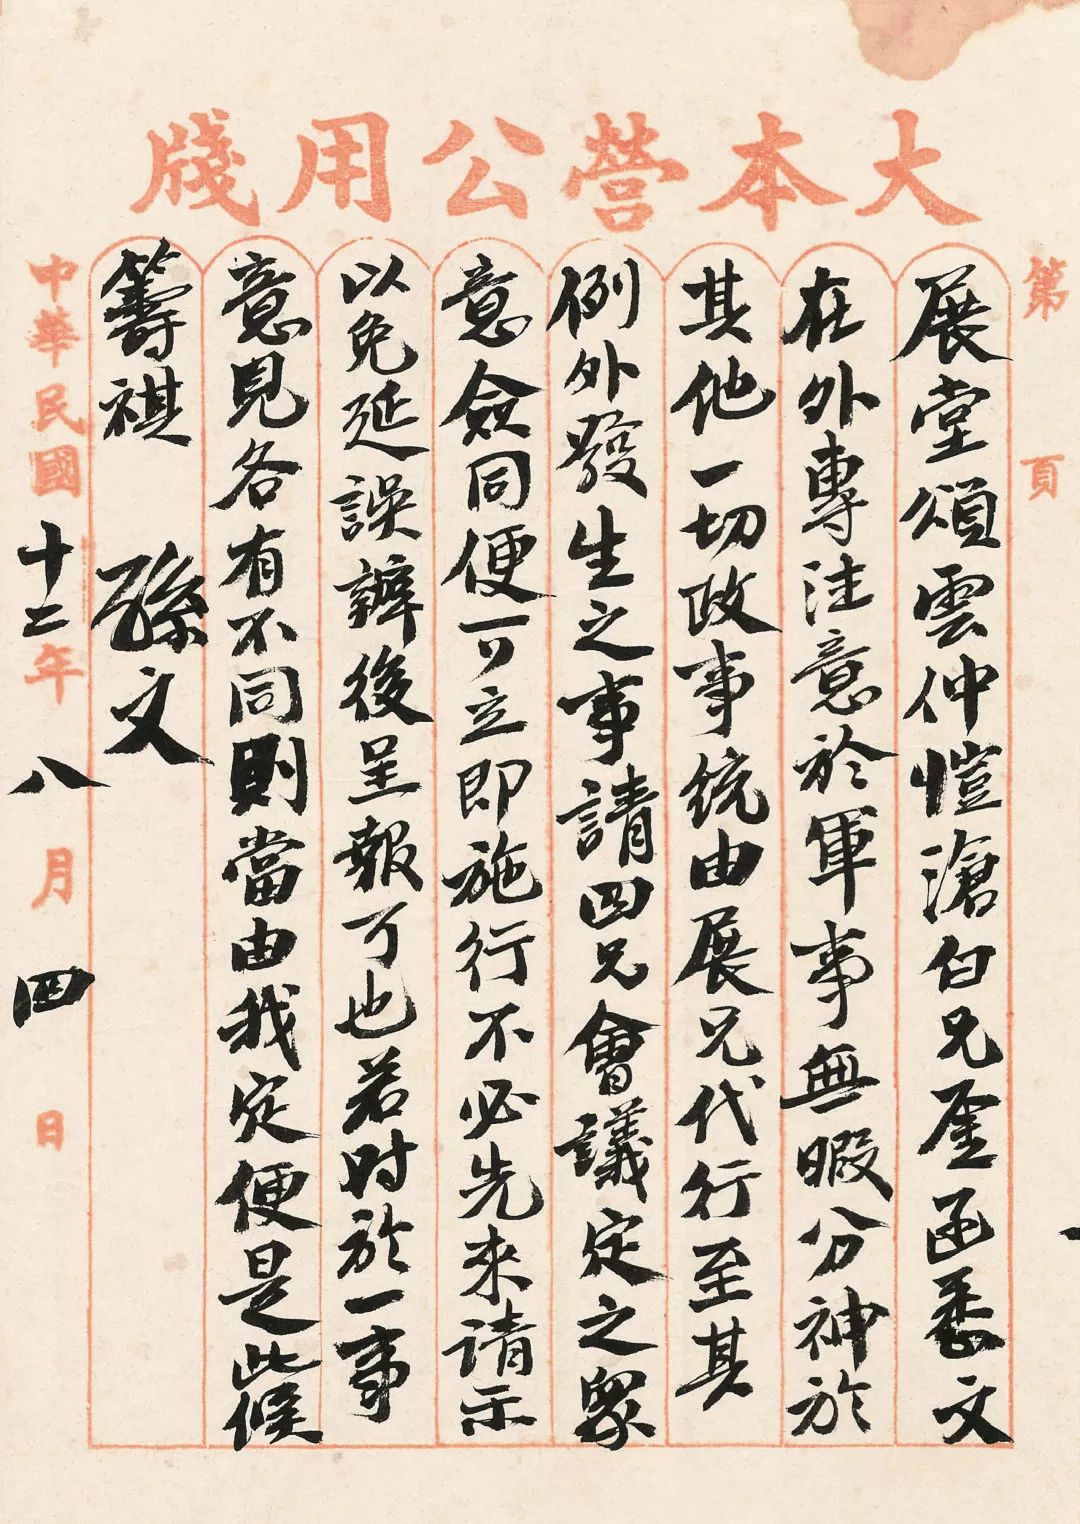 大本營公用牋
第 頁
展堂頌雲仲愷滄白兄鋻函悉文
在外專注意於軍事無暇分神於
其他一切政事統由展兄代行至其
例外發生之事請四兄會議定之眾
意僉同便可立即施行不必先來請示
以免延誤辦後呈報可也若时於一事
意見各有不同則當由我定便是此候
籌祺 孫文
中華民國十二年八月四日